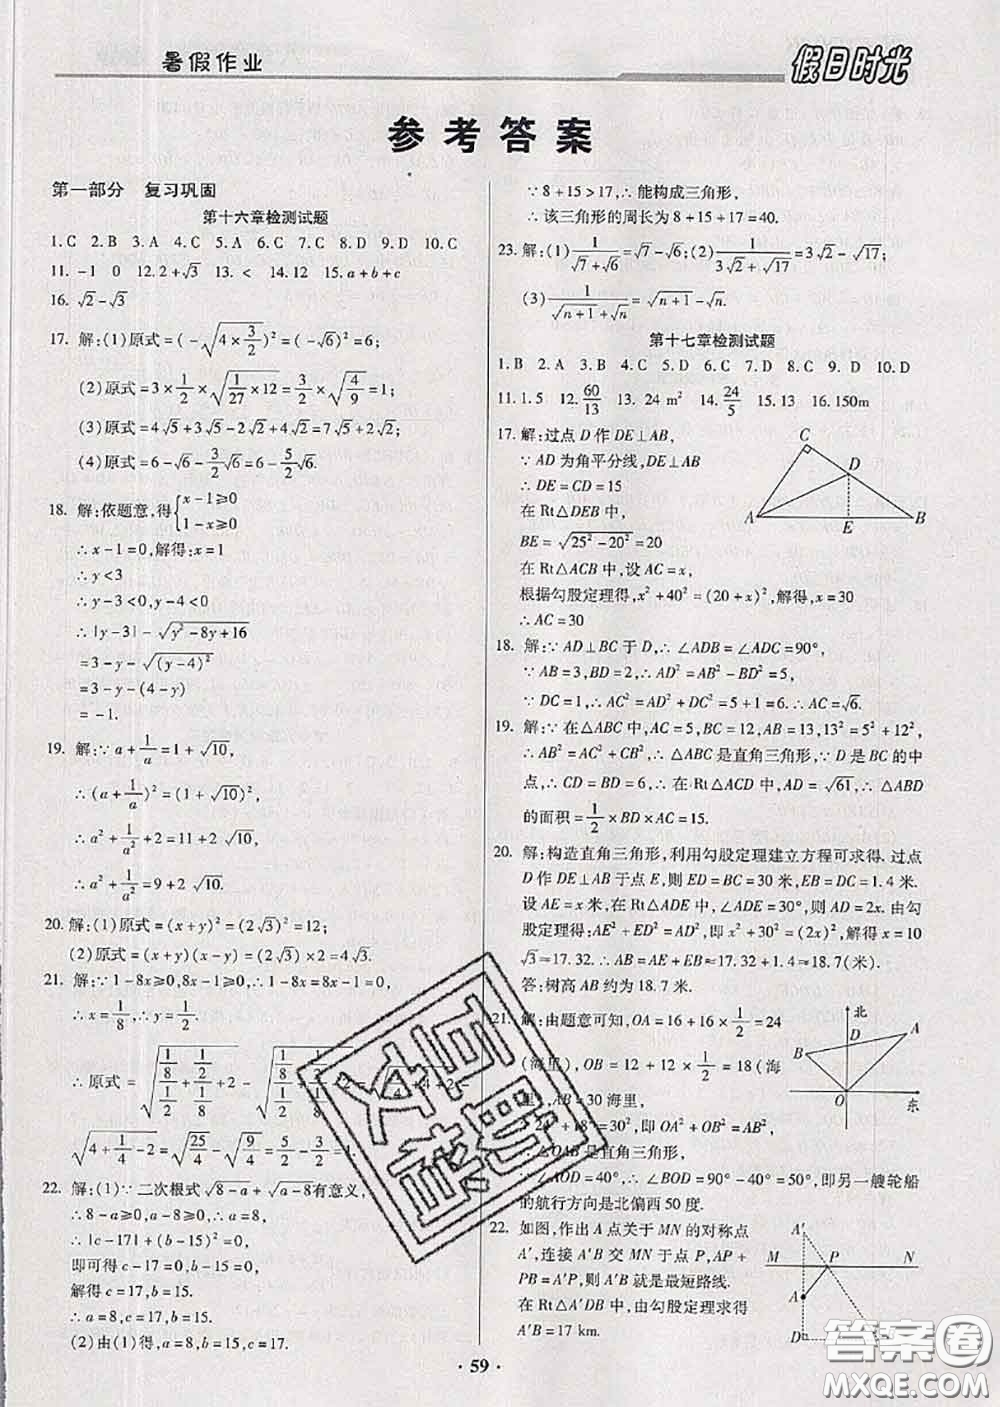 暑假作业
假日时光
参考答案
第一部分 复习巩固
第十六章检测试题
1. C 2. B 3. A 4. C 5. A 6. C 7. C 8. D 9. D 10. C
11. -1 0 12. 2+√3 13. < 14. 12 15. a+b+c
16. √2-√3
17. 解:(1)原式=(-√(4×3/2))²=(-√6)²=6;
(2)原式=3×1/2×√(1/27×12)=3/2×√(4/9)=1;
(3)原式=4√5+3√5-2√2+4√2=7√5+2√2;
(4)原式=6-√6-3/2√6=6-5/2√6.
18. 解:依题意,得{x-1≥0
1-x≥0
∴x-1=0,解得:x=1
∴y<3
∴y-3<0,y-4<0
∴|y-3|-√(y²-8y+16)
=3-y-√((y-4)²)
=3-y-(4-y)
=-1.
19. 解:∵a+1/a=1+√10,
∴(a+1/a)²=(1+√10)²,
∴a²+1/a²+2=11+2√10,
∴a²+1/a²=9+2√10.
20. 解:(1)原式=(x+y)²=(2√3)²=12;
(2)原式=(x+y)(x-y)=(2√3)×2=4√3.
21. 解:∵1-8x≥0,8x-1≥0,∴1-8x=8x-1=0,
∴x=1/8,∴y=1/2,
∴原式=√((1/8)/(1/2)+(1/2)/(1/8)+2)-
√(4+1/4+2)-√(1/4+4-2)=√(25/4)-√(9/4)=5/2-3/2=1.
22. 解:(1)∵二次根式√(8-a)+√(a-8)有意义,
∴8-a≥0,a-8≥0,∴a=8,
∴|c-17|+(b-15)²=0,
即可得c-17=0,b-15=0,
解得c=17,b=15.
∴a=8,c=17,b=15.
(2)由(1)得,a=8,b=15,c=17.
∵8+15>17,∴能构成三角形,
∴该三角形的周长为8+15+17=40.
23. 解:(1)1/(√7+√6)=√7-√6;(2)1/(3√2+√17)=3√2-√17;
(3)1/(√(n+1)+√n)=√(n+1)-√n.
第十七章检测试题
1. B 2. A 3. A 4. C 5. D 6. C 7. D 8. C 9. D 10. D
11. 1.5 12. 60/13 13. 24 m² 14. 24/5 15. 13 16. 150m
17. 解:过点D作DE⊥AB,
∵AD为角平分线,DE⊥AB
∴DE=CD=15
在Rt△DEB中,
BE=√(25²-20²)=20
在Rt△ACB中,设AC=x,
根据勾股定理得,x²+40²=(20+x)²,解得,x=30
∴AC=30
C D A E B
18. 解:∵AD⊥BC于D,∴∠ADB=∠ADC=90°,
∵AB=3,BD=2,∴AD²=AB²-BD²=5,
∵DC=1,∴AC²=AD²+DC²=5+1=6.∴AC=√6.
19. 解:∵在△ABC中,AC=5,BC=12,AB=13,13²=5²+12²,
∴AB²=AC²+CB²,∴△ABC是直角三角形,∵D是BC的中
点,∴CD=BD=6,∴在Rt△ACD中,AD=√61,∴△ABD
的面积=1/2×BD×AC=15.
20. 解:构造直角三角形,利用勾股定理建立方程可求得.过点
D作DE⊥AB于点E,则ED=BC=30米,EB=DC=1.4米.
设AE=x米,在Rt△ADE中,∠ADE=30°,则AD=2x.由勾
股定理得:AE²+ED²=AD²,即x²+30²=(2x)²,解得x=10
√3≈17.32.∴AB=AE+EB≈17.32+1.4≈18.7(米).
答:树高AB约为18.7米.
21. 解:由题意可知,OA=16+16×1/2=24
(海里),OB=12+12×1/2=18(海
里),AB=30海里,
24²+18²=30²,即OA²+OB²=AB²,
∴△OAB是直角三角形,
∵∠AOD=40°,∴∠BOD=90°-40°=50°,即另一艘轮船
的航行方向是北偏西50度.
北 A D B O 东
22. 如图,作出A点关于MN的对称点
A′,连接A′B交MN于点P,AP+
PB=A′P,则A′B就是最短路线.
在Rt△A′DB中,由勾股定理求得
A′B=17 km.
A′ M P N A D
· 59 ·
答案卷
MXQE.COM